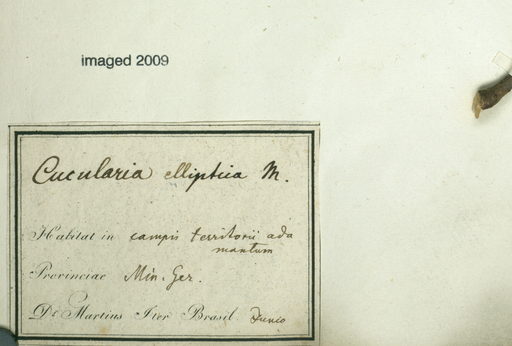 imaged 2009
Cucularia elliptica M.
Habitat in campis territorii ada
mantum
Provinciae Min. Ger.
Dr. Martius Iter Brasil. Junio